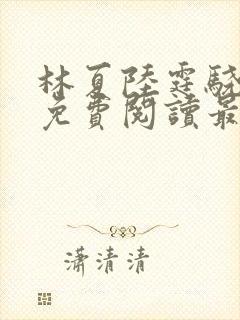 林夏陸霆驍
免費閱讀最
瀟清清